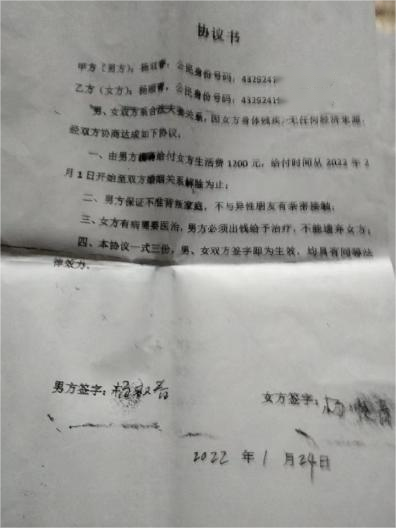 协议书
甲方（男方）：杨双 ，公民身份号码：4329241
乙方（女方）：杨 ，公民身份号码：4329241
男、女双方系合法夫妻关系，因女方身体残疾，无任何经济来源，
经双方协商达成如下协议：
一、由男方 给付女方生活费1200元，给付时间从2022年2
月1日开始至双方婚姻关系解除为止；
二、男方保证不 背叛家庭，不与异性朋友有亲密接触；
三、女方有病需要医治，男方必须出钱给予治疗，不能遗弃女方；
四、本协议一式三份，男、女双方签字即为生效，均具有同等法
律效力。
男方签字：杨双
女方签字：杨
2022年1月24日